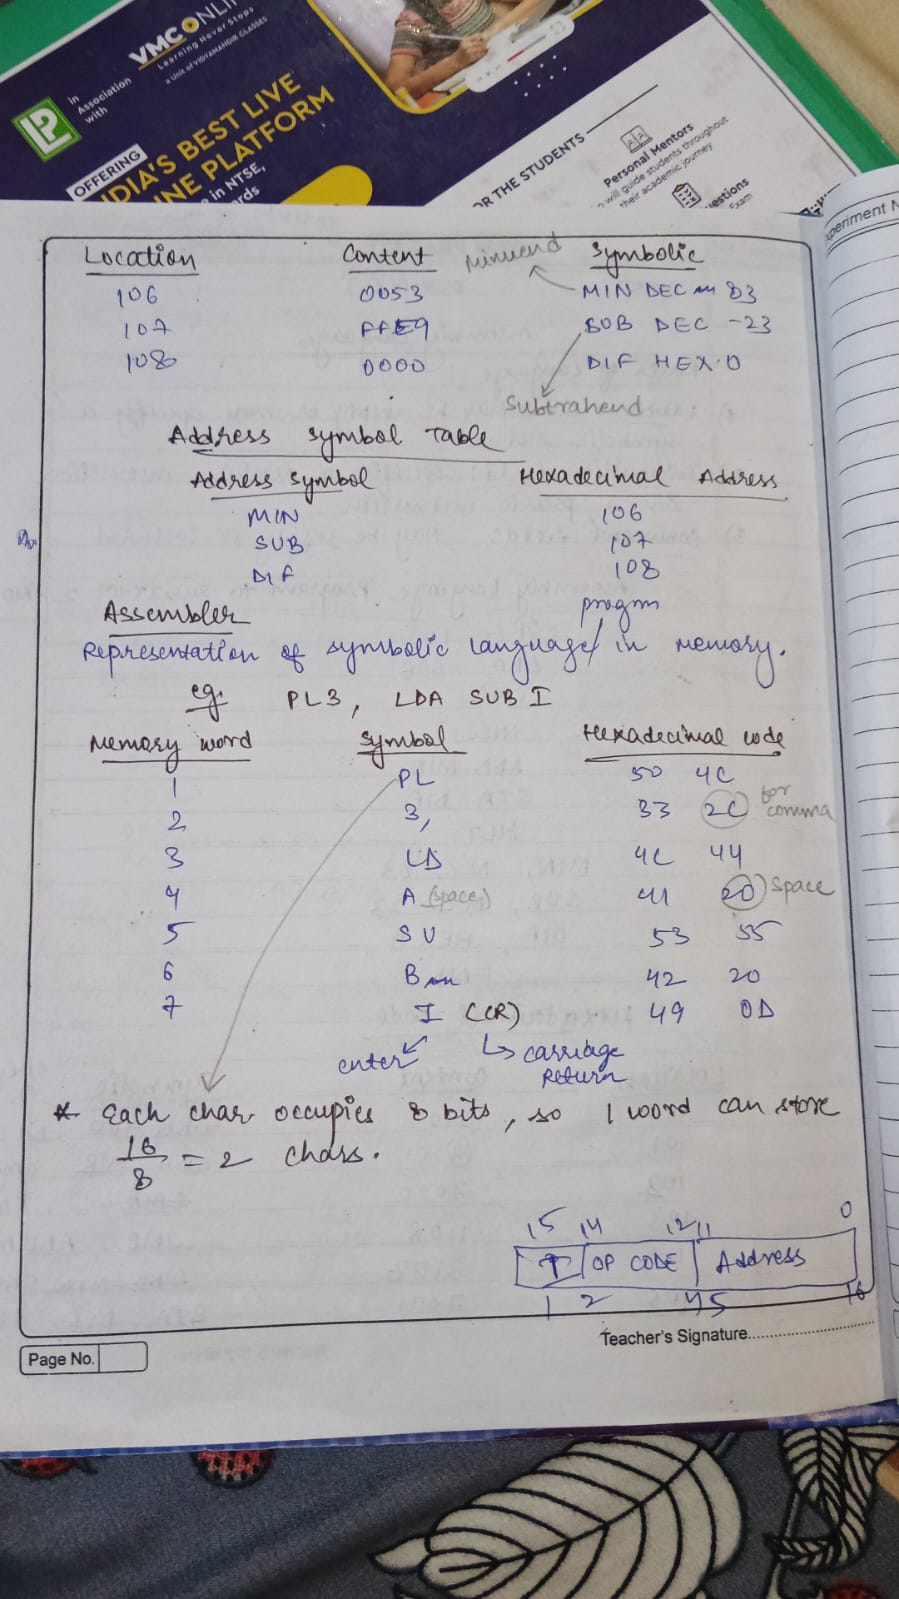 VMC ONLI
Learning Never Stops
a Unit of VIDYAMANDIR CLASSES
in
Association
with
LP
OFFERING
DIA'S BEST LIVE
NE PLATFORM
in NTSE,
rds
OR THE STUDENTS
Personal Mentors
will guide students throughout
their academic journey
estions
Exam
xperiment N
Location Content Minuend Symbolic
106 0053 MIN DEC 83
107 FFE9 SUB DEC -23
108 0000 DIF HEX 0
Subtrahend
Address symbol Table
Address symbol Hexadecimal Address
MIN 106
SUB 107
DIF 108
Assembler progrm
Representation of symbolic language in memory.
eg. PL3, LDA SUB I
Memory word Symbol Hexadecimal code
1 PL 50 4C
2 3, 33 2C for comma
3 LD 4C 44
4 A (space) 41 20 Space
5 SU 53 55
6 B 42 20
7 I (CR) 49 0D
enter carriage
return
* Each char occupies 8 bits, so 1 word can store
16/8 = 2 chars.
15 14 12 11 0
I OP CODE Address
1 2 4 5 16
Teacher's Signature
Page No.